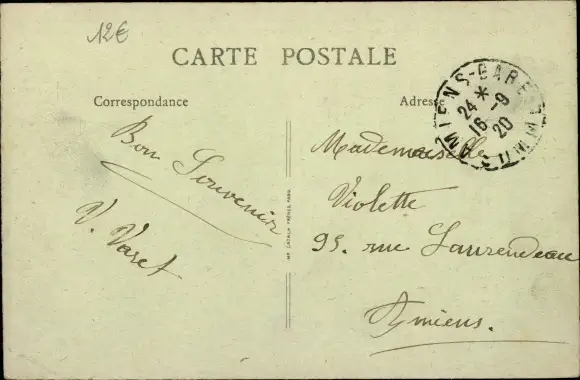 12€
CARTE POSTALE
Correspondance
Adresse
AMIENS-GARE
SOMME
24 *
16 -9
20
Bon Souvenir
V. Varet
IMP. CATALA FRÈRES, PARIS
Mademoiselle
Violette
95. rue Laurendeau
Amiens.